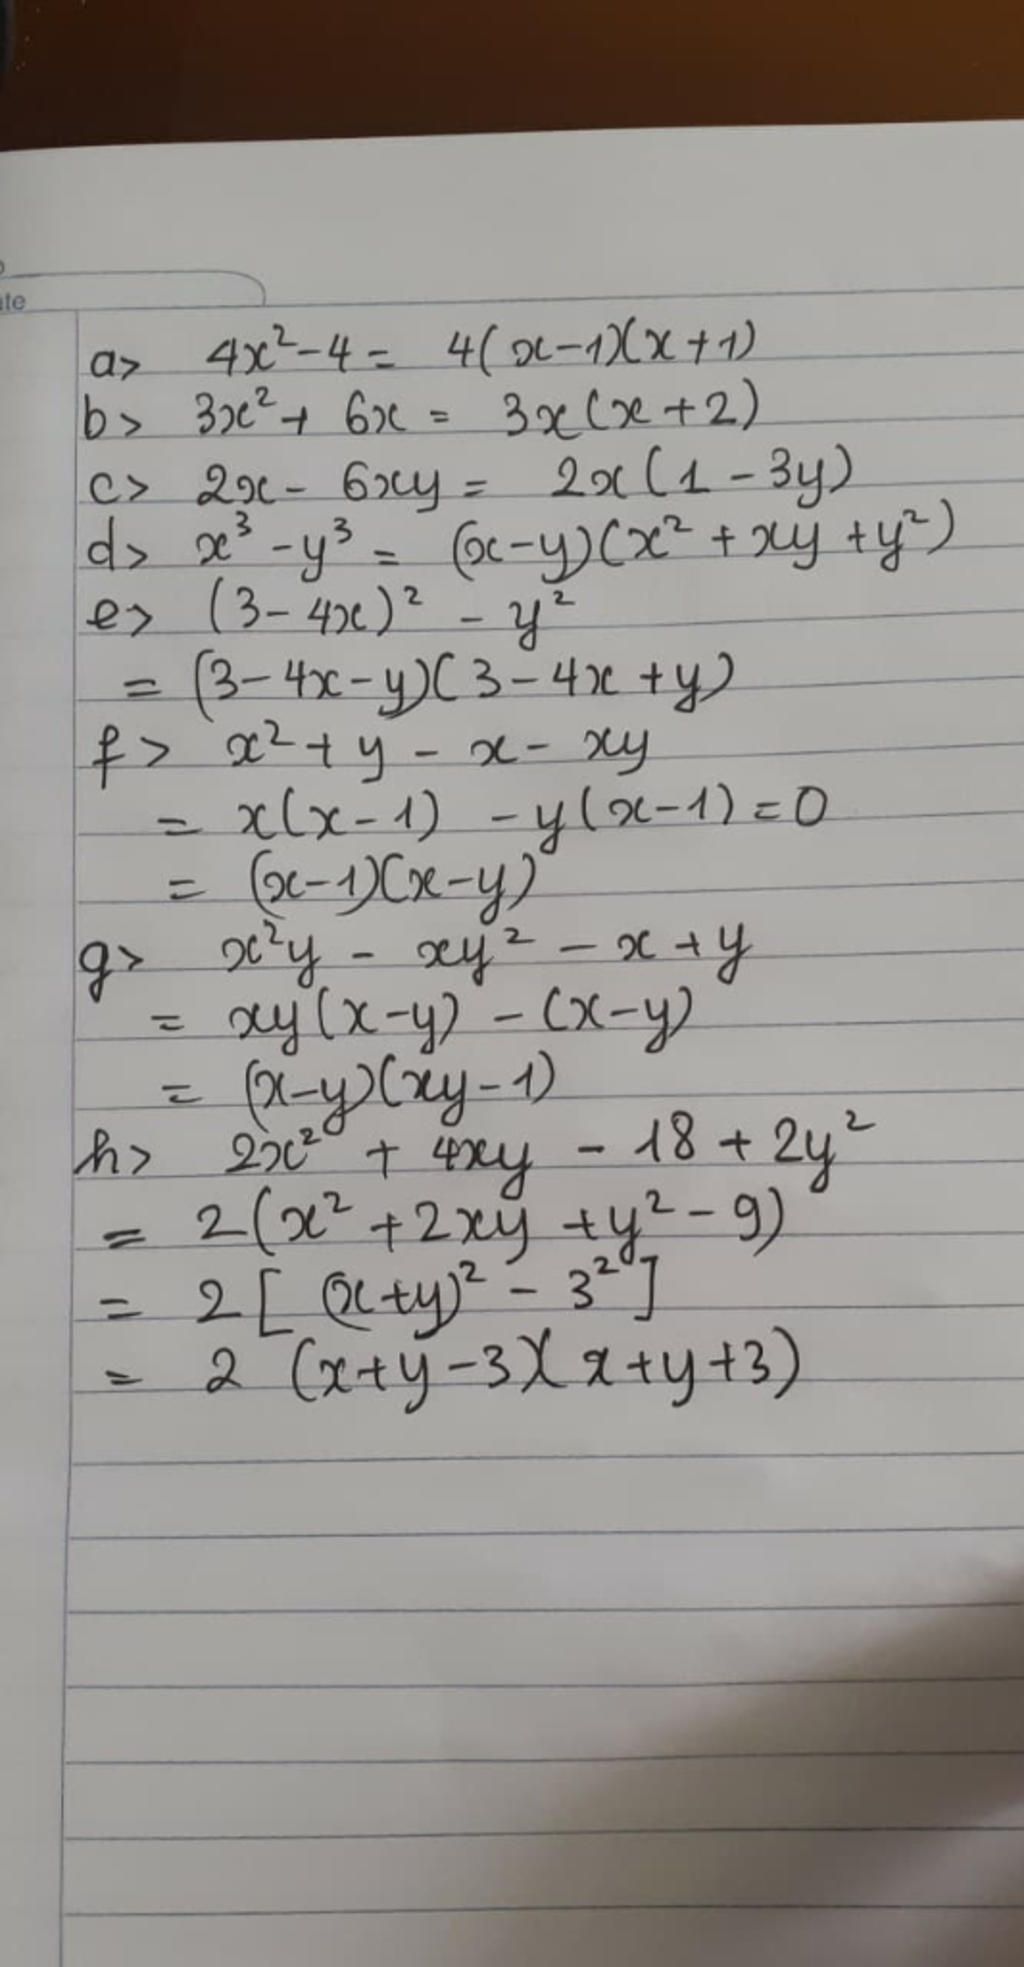 ate
a> 4x² - 4 = 4(x-1)(x+1)
b> 3x² + 6x = 3x(x+2)
c> 2x - 6xy = 2x(1 - 3y)
d> x³ - y³ = (x-y)(x² + xy + y²)
e> (3 - 4x)² - y²
= (3 - 4x - y)(3 - 4x + y)
f> x² + y - x - xy
= x(x - 1) - y(x-1) = 0
= (x-1)(x-y)
g> x²y - xy² - x + y
= xy(x-y) - (x-y)
= (x-y)(xy-1)
h> 2x² + 4xy - 18 + 2y²
= 2(x² + 2xy + y² - 9)
= 2[ (x+y)² - 3² ]
= 2 (x+y-3)(x+y+3)